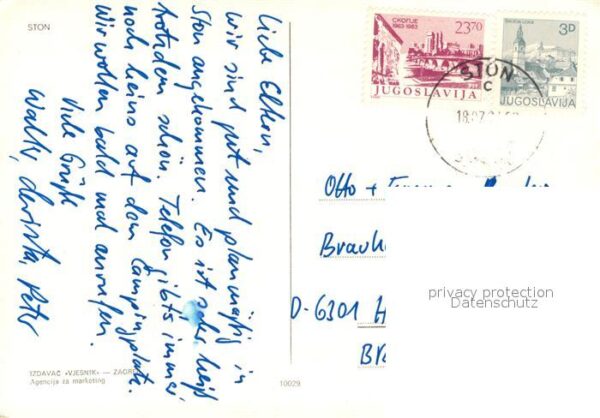 STON
Liebe Eltern,
wir sind gut und planmäßig in
Ston angekommen. Es ist sehr heiß
trotzdem schön. Telefon gibts immer
noch keins auf dem Campingplatz.
Wir wollen bald mal anrufen.
Viele Grüße
Peter
IZDAVAČ »VJESNIK« — ZAGREB
Agencija za marketing
10029
СКОПЈЕ
1963-1983
23.70
JUGOSLAVIJA
ŠKOFJA LOKA
3D
JUGOSLAVIJA
STON
C
18.07
Otto +
D-6301
privacy protection
Datenschutz